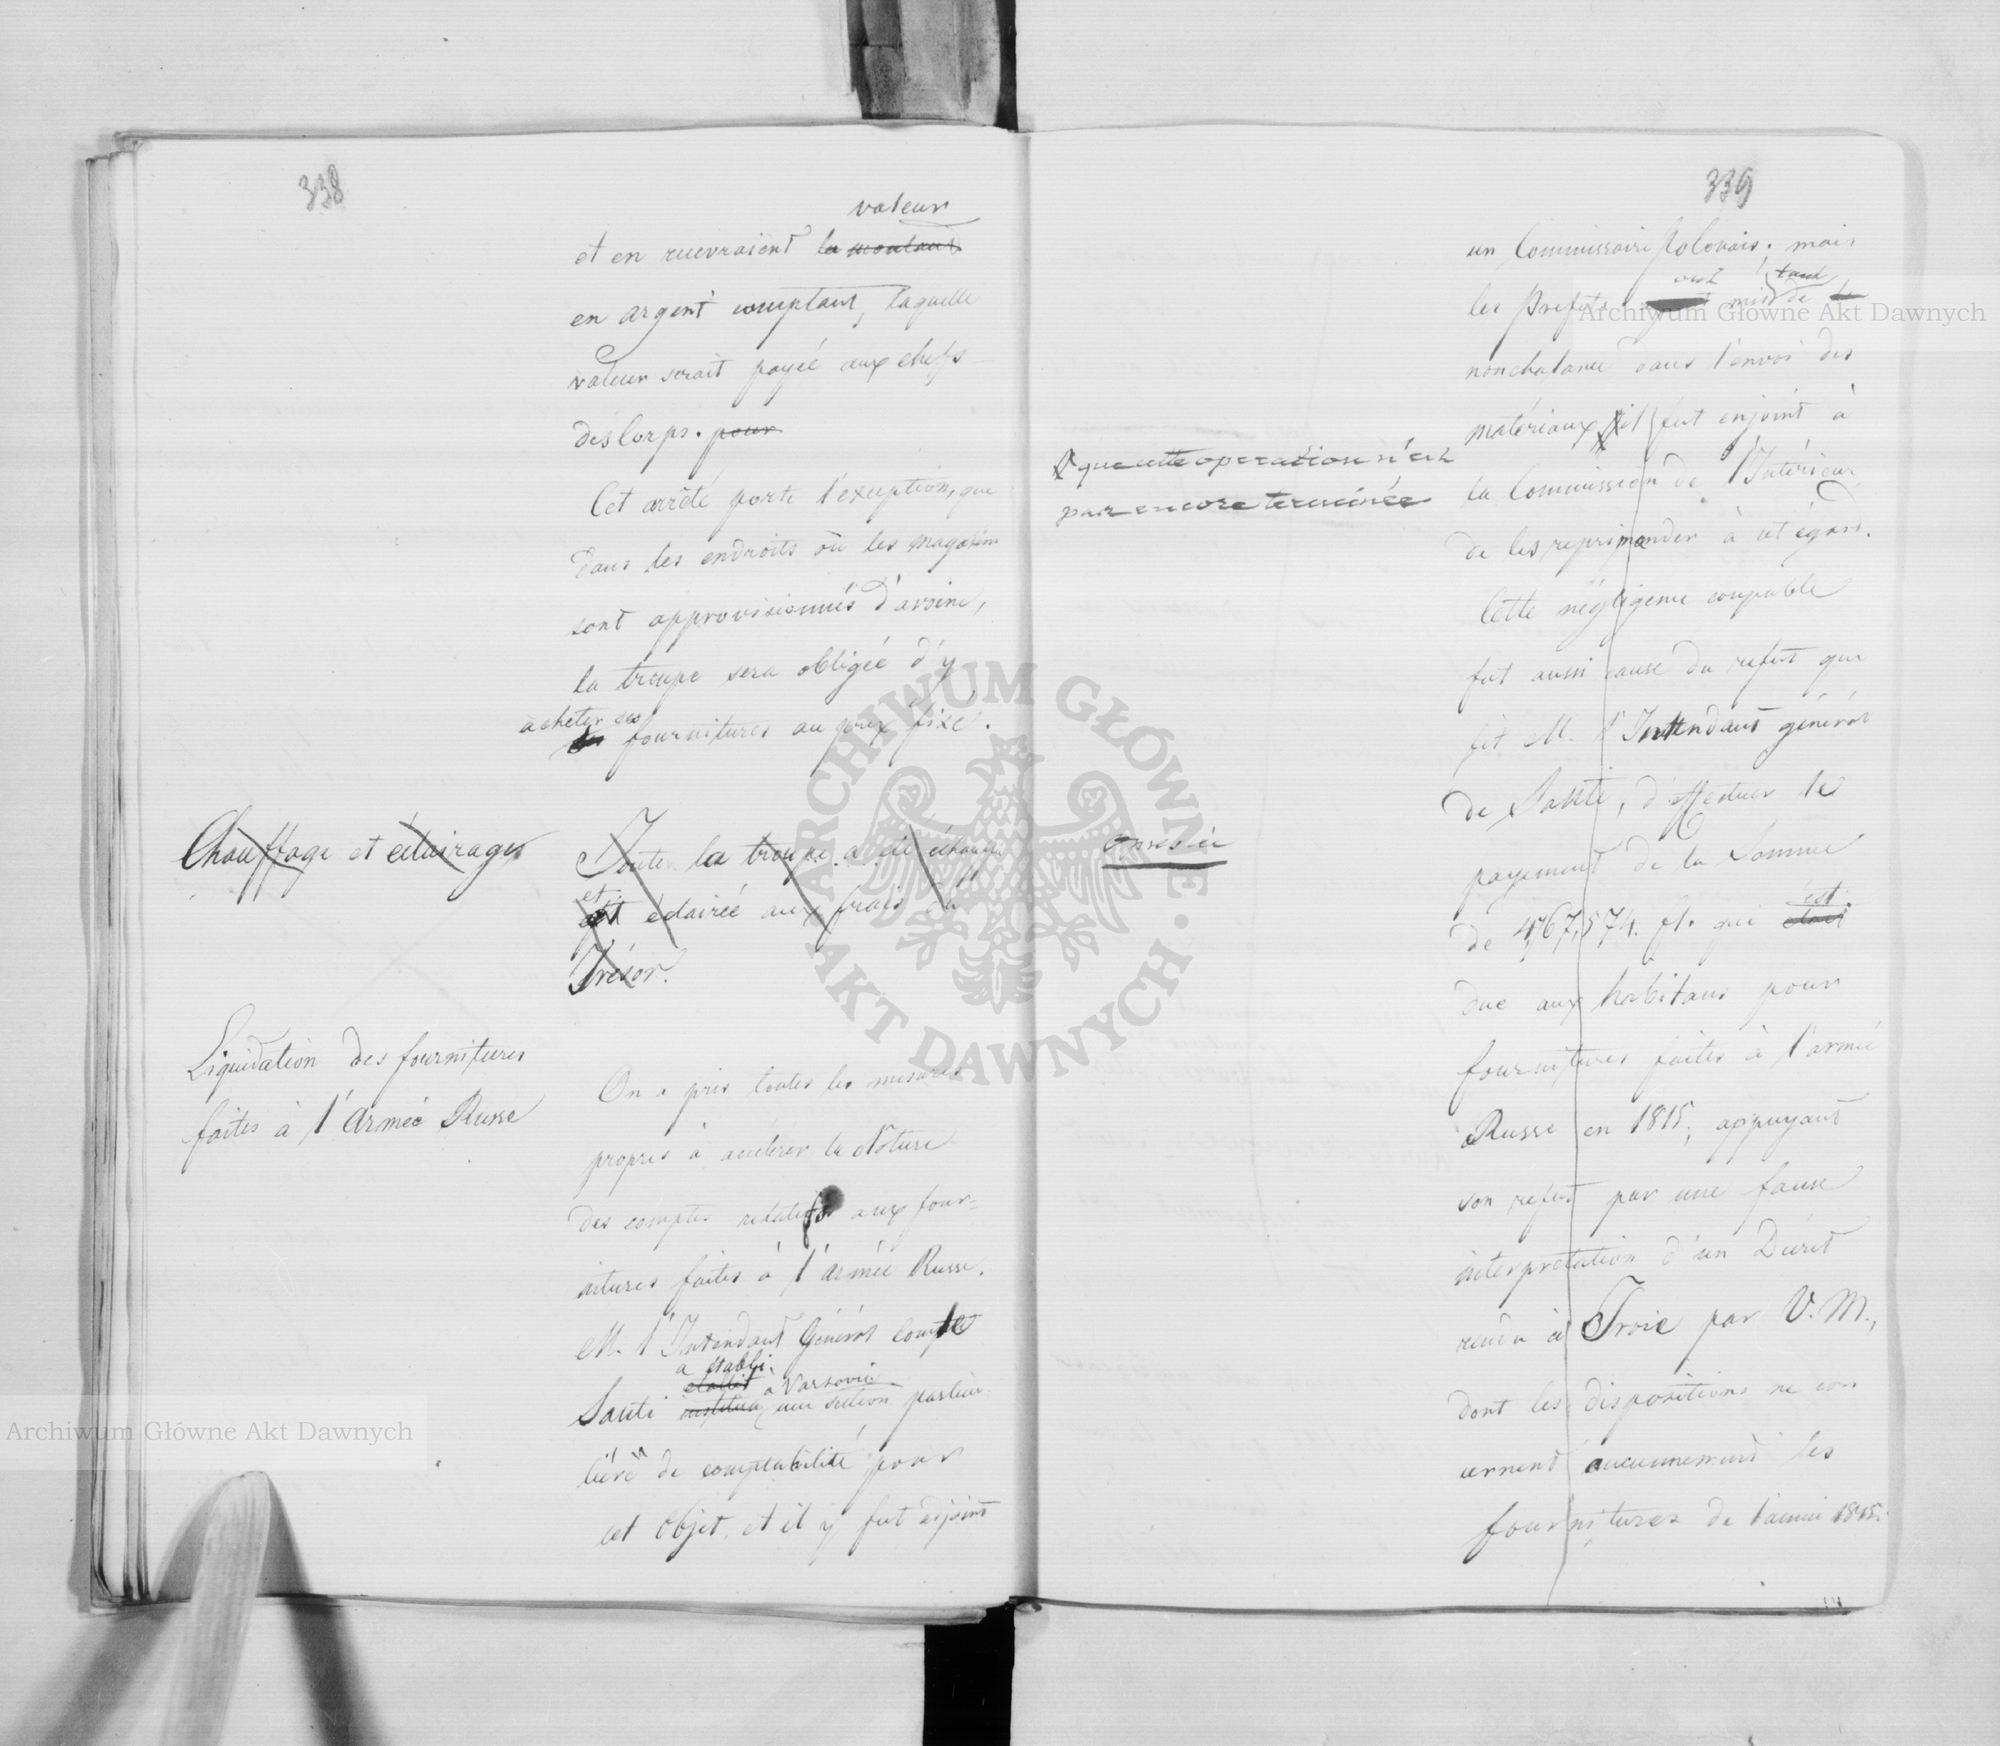 338
valeur
et en recevraient la montant
en argent comptant, laquelle
valeur serait payée aux chefs
des Corps. pour
Cet arrêté porte l'exception, que
dans les endroits où les magasins
sont approvisionnés d'avoine,
la troupe sera obligée d'y
acheter ses
fournitures au prix fixé.
Chauffage et éclairage
Toute la troupe a été échauffée
et
est éclairée aux frais du
Trésor.
Liquidation des fournitures
faites à l'Armée Russe
On a pris toutes les mesures
propres à accélérer la Cloture
des comptes relatifs aux four=
nitures faites à l'Armée Russe.
M. l'Intendant Général Comte
a établi
établit à Varsovie
Santi institua une section particu
lière de comptabilité pour
cet Objet, et il y fut adjoint
339
un Commissaire Polonais; mais
ont tant
les Préfets mis de la
nonchalance dans l'envoi des
matériaux qu'il fut enjoint à
que cette operation n'est
pas encore terminée
la Commission de l'Intérieur
de les reprimander à cet égard.
Cette négligence coupable
fut aussi cause du refus que
fit M. l'Intendant général
de Santi, d'effectuer le
payement de la Somme
est
de 4,767,574. fl. qui était
due aux habitans pour
fournitures faites à l'armée
Russe en 1815; appuyant
son refus par une fausse
interprétation d'un Décret
rendu à Troie par V. M.,
dont les dispositions ne con
cernent aucunement les
fournitures de l'année 1815.
Archiwum Główne Akt Dawnych
Archiwum Główne Akt Dawnych
ARCHIWUM GŁÓWNE AKT DAWNYCH